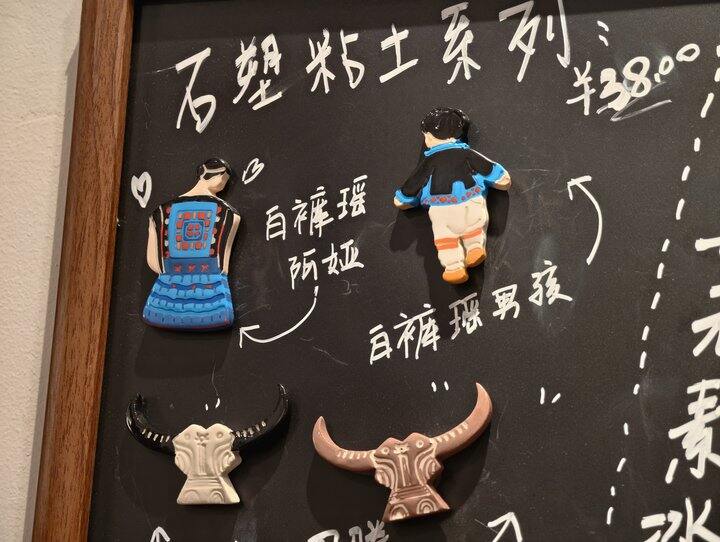 石塑粘土系列:
¥38.00
白褲瑶
阿娅
白褲瑶男孩
素